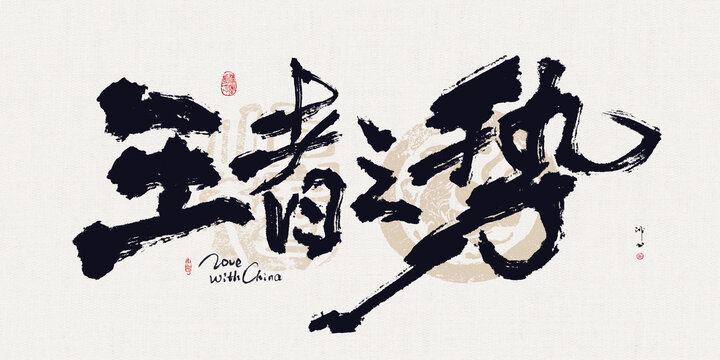 王者之势
Love
with China